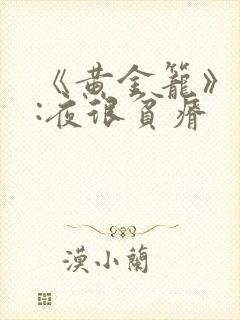 《黄金籠》
:夜很貧瘠
漠小蘭